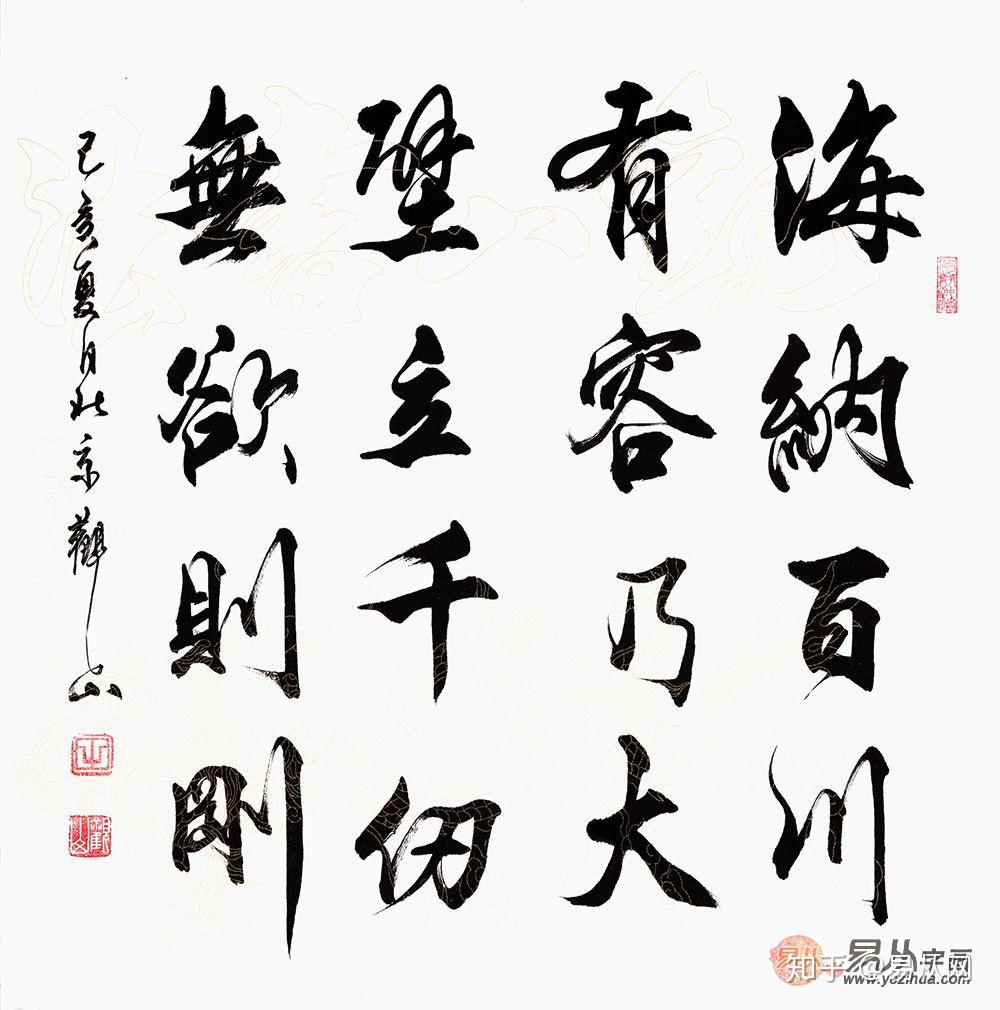 海納百川
有容乃大
壁立千仞
無欲則剛
己亥夏月北京觀山
觀山
易从字画
知乎 @易从网
www.yczihua.com